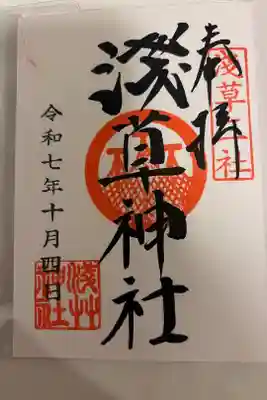 奉拝
浅草三社
淺草神社
令和七年十月四日
淺艸神社